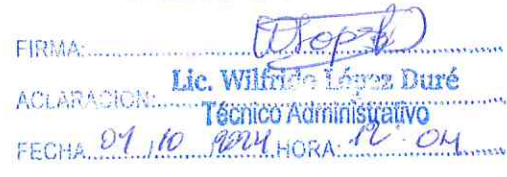 FIRMA:
ACLARACION: Lic. Wilfrido López Duré
Técnico Administrativo
FECHA 01 / 10 / 2024 HORA: 12:04